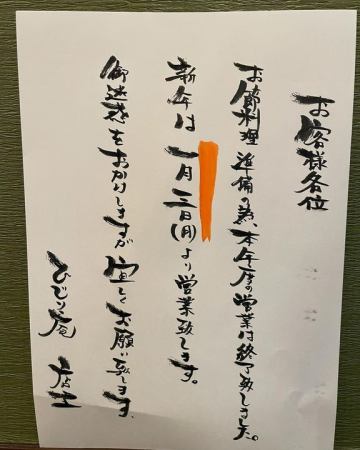 お客様各位
お節料理準備の為、本年度の営業は終了致しました。
新年は一月三日(月)より営業致します。
御迷惑をおかけしますが宜しくお願い致します。
ひじり庵 店主